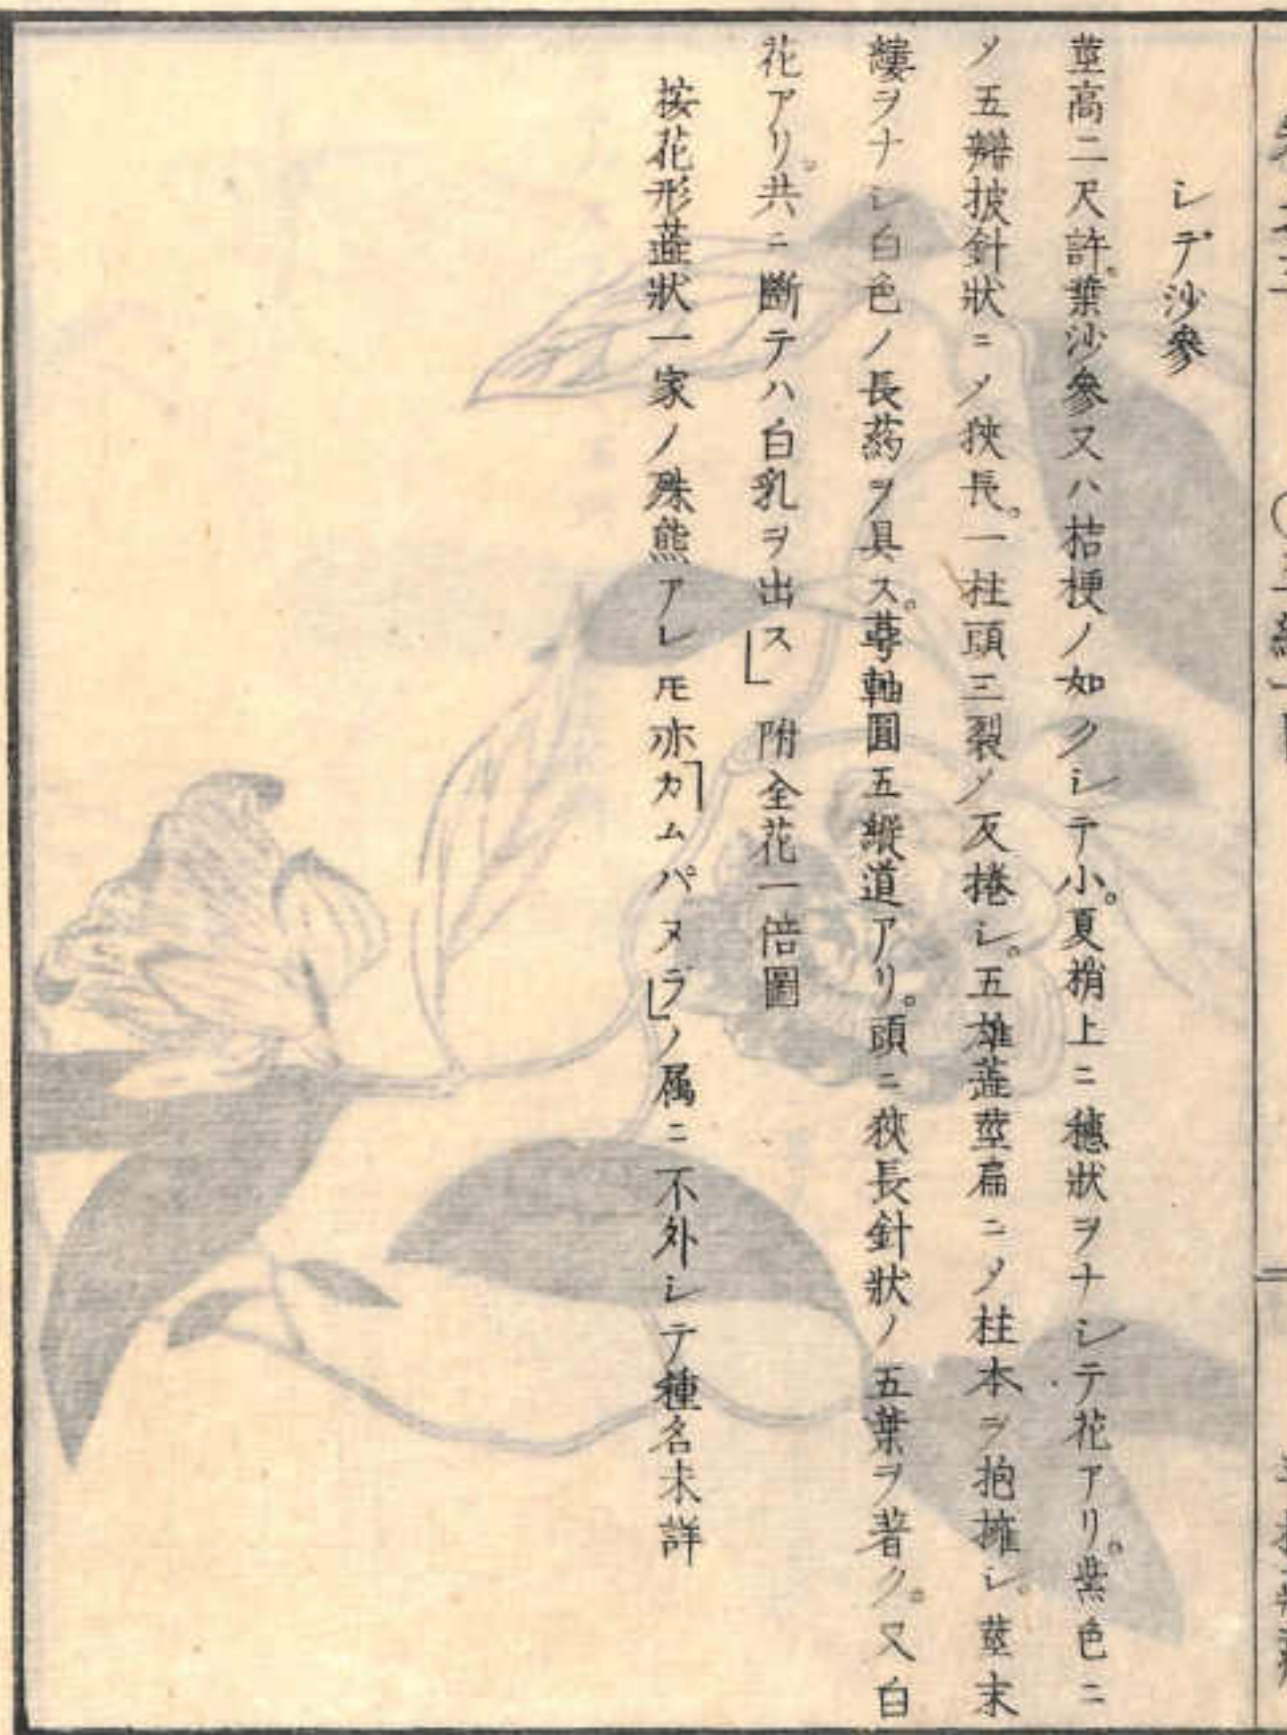 シデ沙參
莖高二尺許。葉沙參又ハ桔梗ノ如クシテ小。夏梢上ニ穗狀ヲナシテ花アリ。紫色ニ
ノ五瓣披針狀ニノ狹長。一柱頭三裂ノ反捲シ。五雄蕋莖扁ニノ柱本ヲ抱擁シ。莖末
縷ヲナシ白色ノ長葯ヲ具ス。萼軸圓五縱道アリ。頭ニ狹長針狀ノ五葉ヲ著ク。又白
花アリ。共ニ斷テハ白乳ヲ出ス」附全花一倍圖
按花形蕋狀一家ノ殊態アレ𪜈亦「カムパヌラ」ノ属ニ不外シテ種名未詳